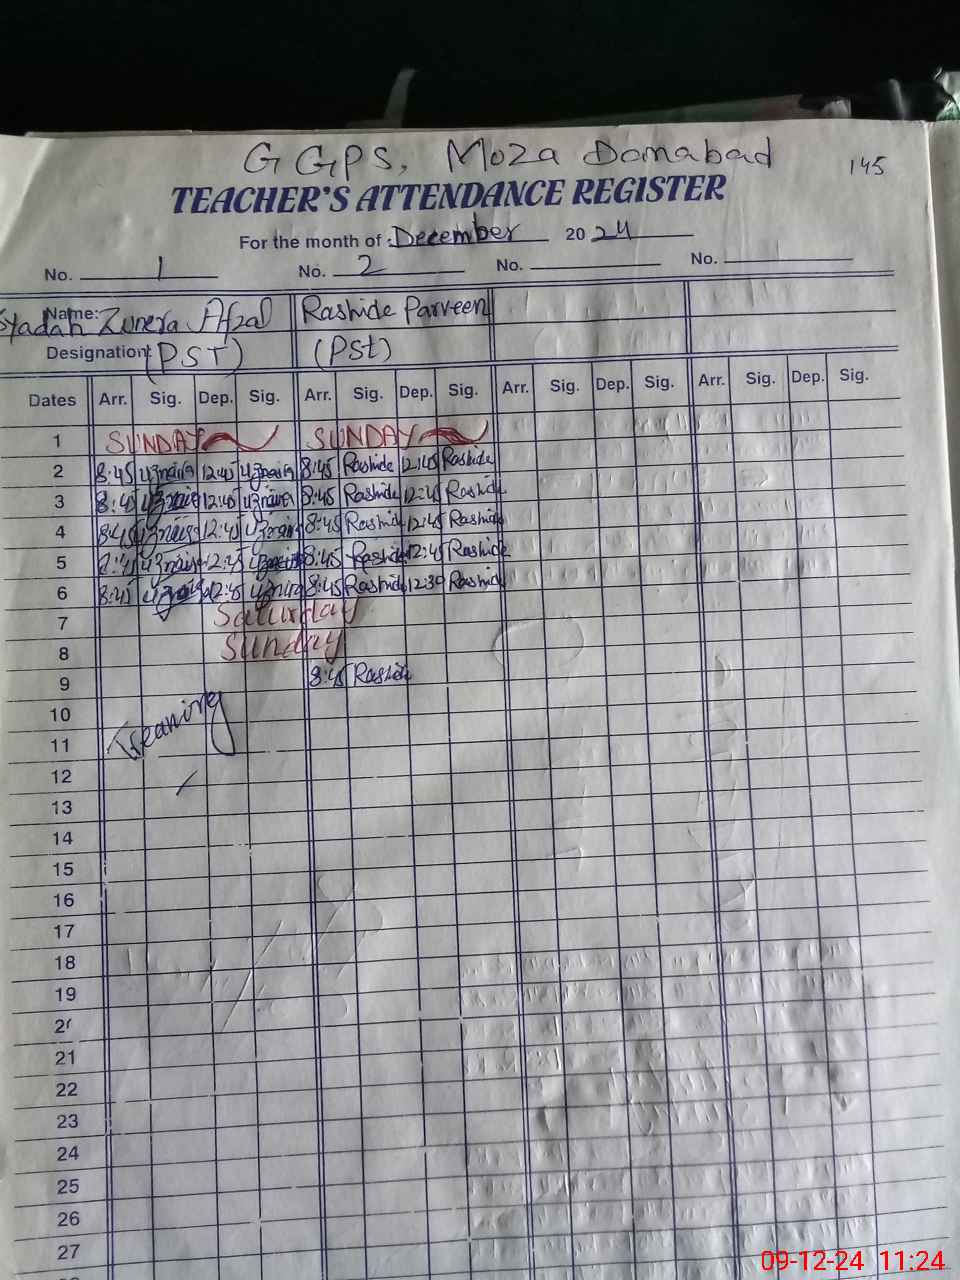 GGPS, Moza Damabad
145
TEACHER'S ATTENDANCE REGISTER
For the month of December 2024
No. 1 No. 2 No. No.
Name: Syadah Zunera Afzal Rashide Parveen
Designation: (PST) (PSt)
Dates Arr. Sig. Dep. Sig. Arr. Sig. Dep. Sig. Arr. Sig. Dep. Sig. Arr. Sig. Dep. Sig.
1 SUNDAY SUNDAY
2 8:45 12:45 8:45 Rashide 12:45 Rashide
3 8:45 12:45 8:45 Rashide 12:45 Rashide
4 8:45 12:45 8:45 Rashide 12:45 Rashide
5 8:45 12:45 8:45 Rashide 12:45 Rashide
6 8:45 12:45 8:45 Rashide 12:30 Rashide
7 Saturday
8 Sunday
9 8:45 Rashide
10
11 Treaning
12
13
14
15
16
17
18
19
20
21
22
23
24
25
26
27
09-12-24 11:24